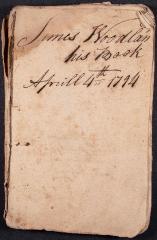 James Woodlan
his Book
Aprill 4th 1794